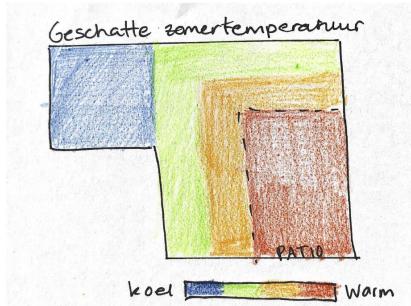 Geschatte zomertemperatuur
PATIO
koel warm